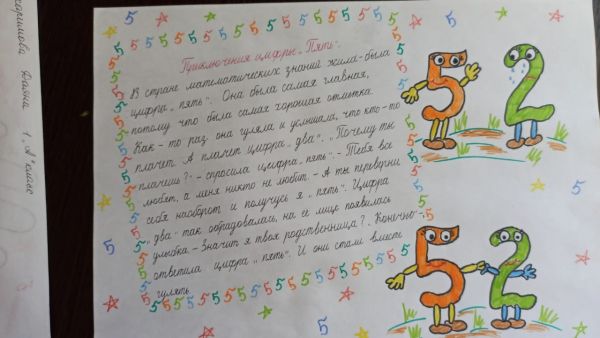 Приключения цифры „Пять".
В стране математических знаний жила-была
цифра „пять". Она была самая главная,
потому что была самая хорошая отметка.
Как-то раз она гуляла и услышала, что кто-то
плачет. А плачет цифра „два". „Почему ты
плачешь?" - спросила цифра „пять". - Тебя все
любят, а меня никто не любит. - А ты переверни
себя наоборот и получусь я „пять". Цифра
„два" так обрадовалась, на её лице появилась
улыбка. - Значит я твоя родственница? „Конечно" -
ответила цифра „пять". И они стали вместе
гулять.
5 2
5 2
Дайна 1 „А" класс